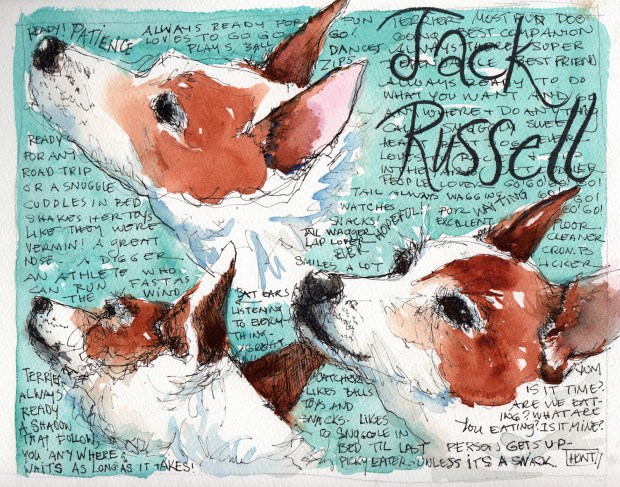 READY! PATIENCE ALWAYS READY FOR FUN
LOVES TO GO GO GO!
PLAYS BALL
DANCES
ZIPS
TERRIER MOST FUN DOG
GOING BEST COMPANION
ALWAYS THERE SUPER
BEST FRIEND
ALWAYS READY TO DO
WHAT YOU WANT AND
ANYWHERE DO ANYTHING
Jack
Russell
SWEET
LOVES
IN THE
PEOPLE LOVER GO! GO! GO!
READY
FOR ANY
ROAD TRIP
OR A SNUGGLE
CUDDLES IN BED
SHAKES HER TOYS
LIKE THEY WERE
VERMIN! A GREAT
NOSE. A DIGGER
AN ATHLETE WHO
CAN RUN FAST AS
THE WIND
TAIL ALWAYS WAGGING
WATCHES
SNACKS!
HOPEFUL!
FOR
WAITING
EXCELLENT
TAIL WAGGER
LAP LOVER
EVER
SMILES A LOT
GO! GO!
GO!
FLOOR
CLEANER
CRUMB
LICKER
BAT EARS
LISTENING
TO EVERY-
THING
GREAT
CATCHER
LIKES BALLS
TOYS AND
SNACKS. LIKES
TO SNUGGLE IN
BED TIL LAST
PERSON GETS UP-
PICKY EATER - UNLESS IT'S A SNACK.
TERRIER
ALWAYS
READY
A SHADOW
THAT FOLLOWS
YOU ANYWHERE
WAITS AS LONG AS IT TAKES!
YUM
IS IT TIME?
ARE WE EAT-
ING? WHAT ARE
YOU EATING? IS IT MINE?
HUNT